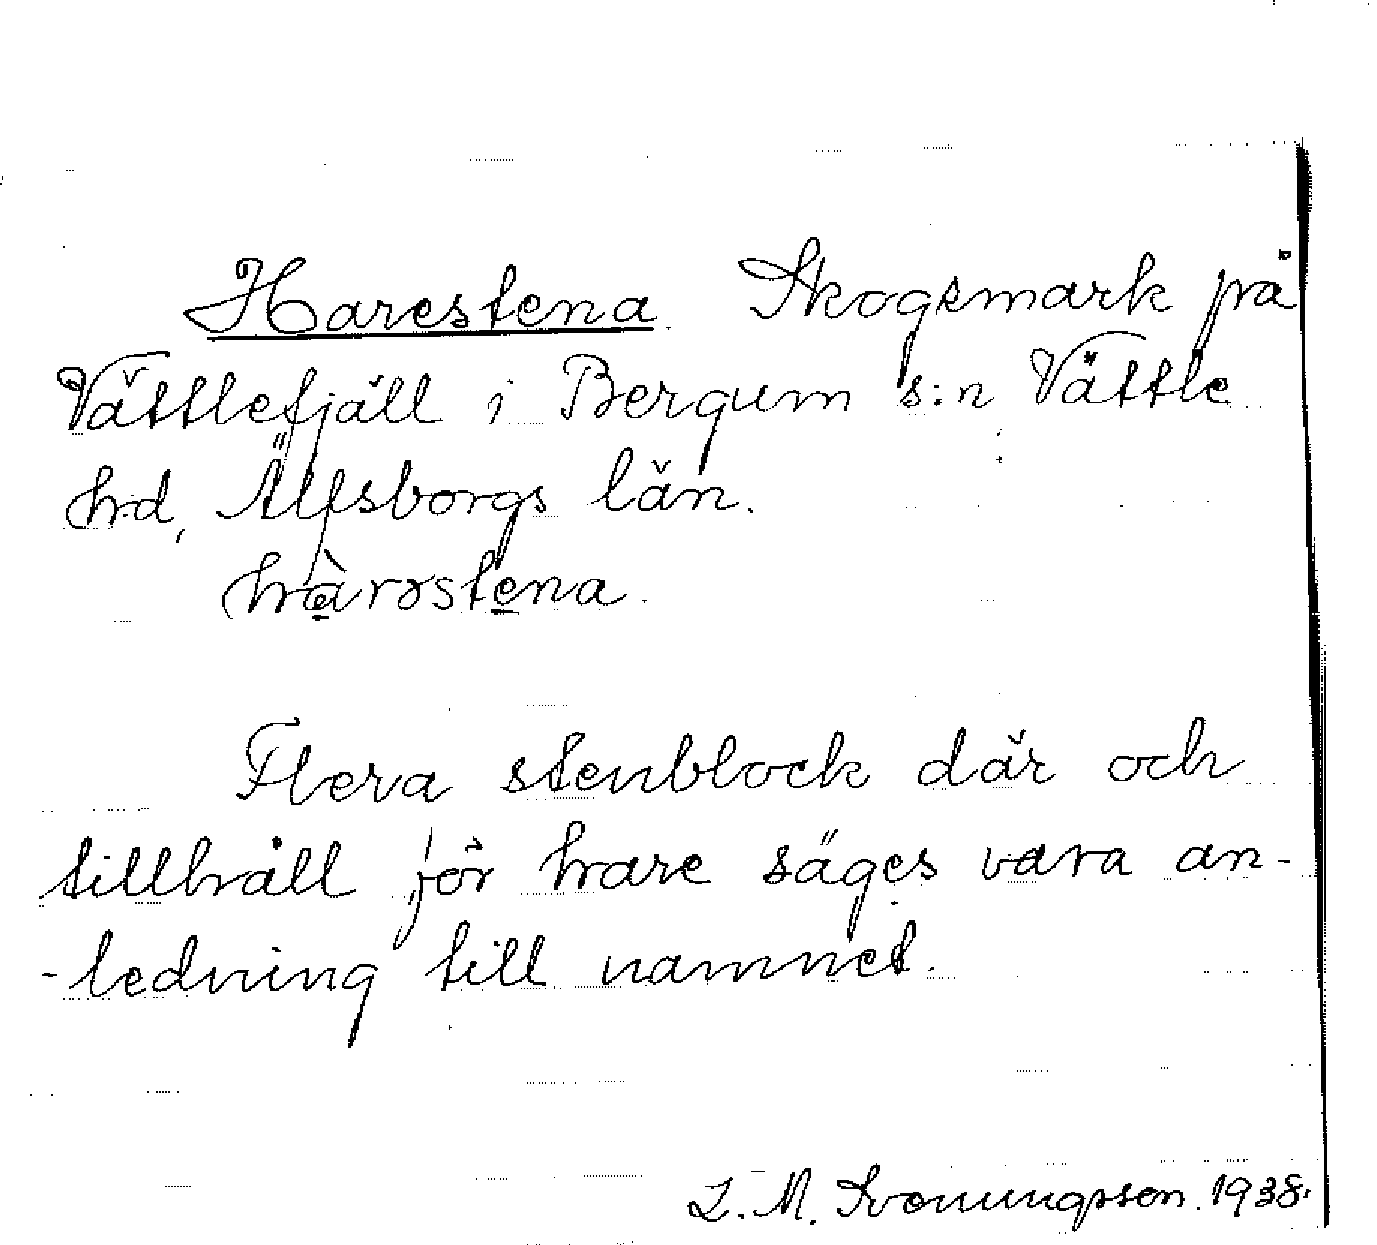 Harestena. Skogsmark på
Vättlefjäll i Bergum s:n Vättle
hrd, Älfsborgs län.
hàrəstena.
Flera stenblock där och
tillhåll för hare säges vara an-
-ledning till namnet.
L. M. Svenungsson. 1938.